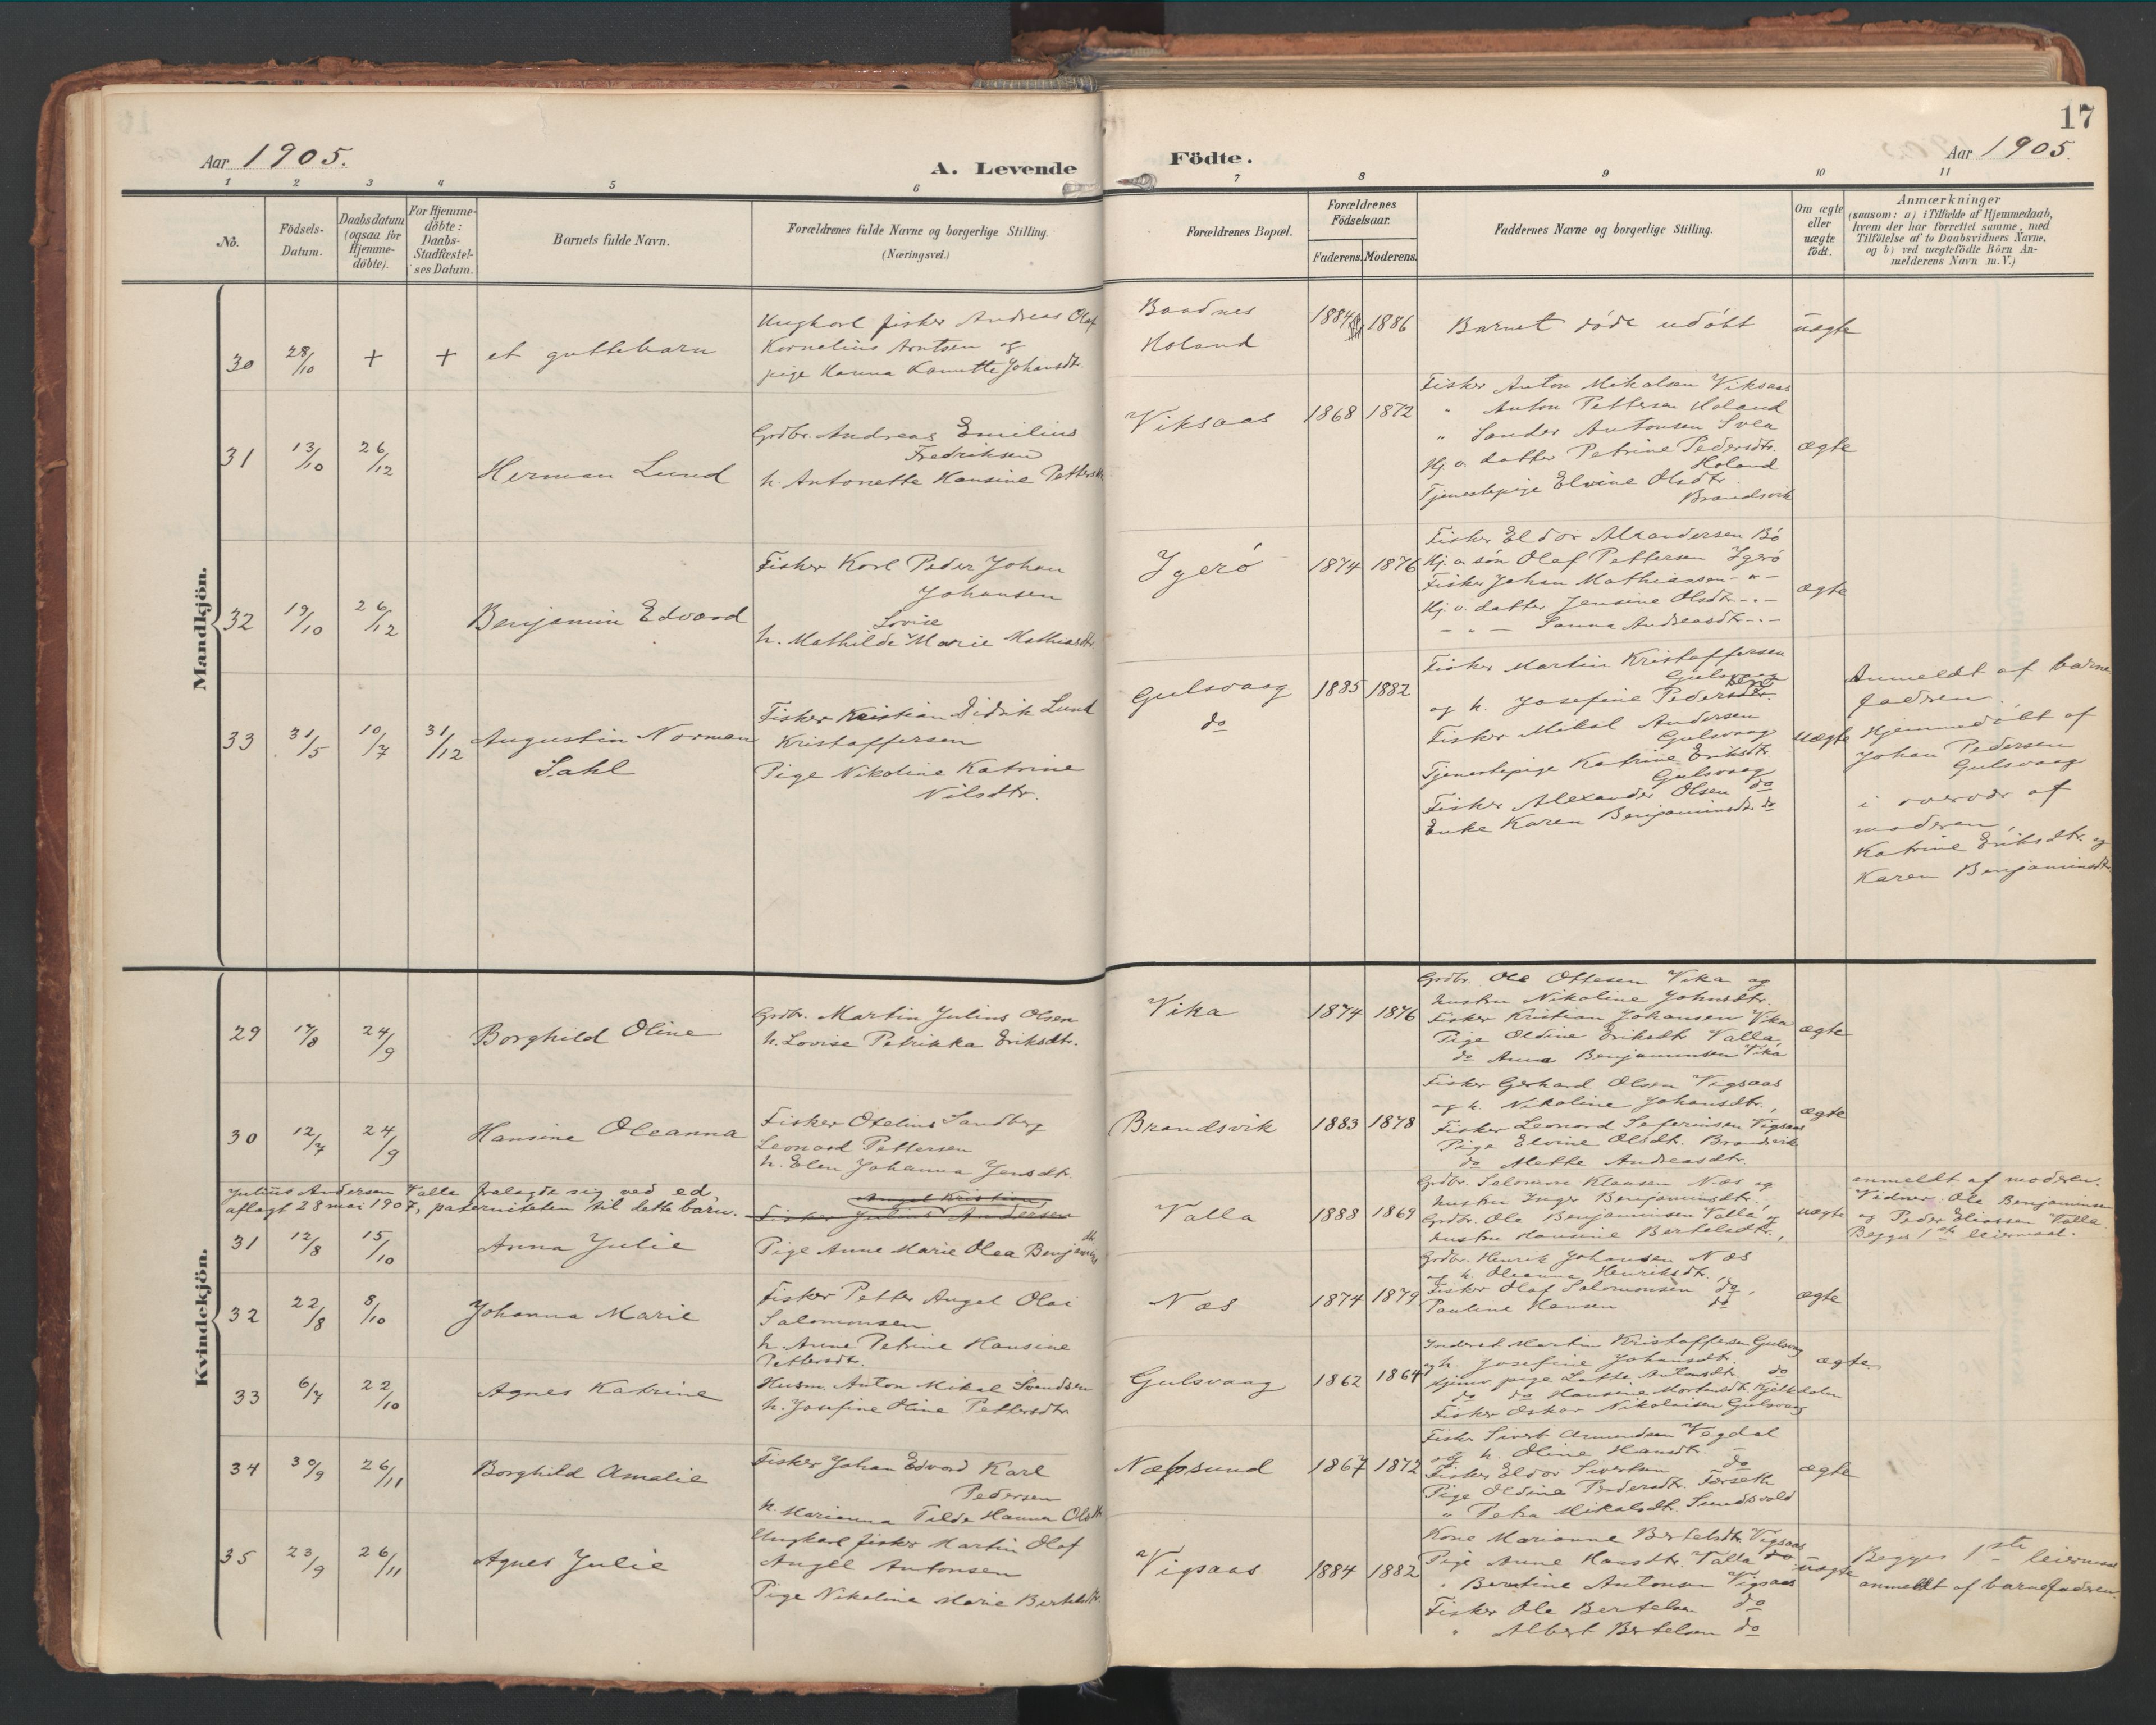 17
Aar 1905.
A. Levende
Födte.
Aar 1905.
1 2 3 4 5 6 7 8 9 10 11
No.
Födsels-
Datum.
Daabsdatum
(ogsaa for
Hjemme-
döbte).
For Hjemme-
döbte:
Daabs-
Stadfæstel-
ses Datum.
Barnets fulde Navn.
Forældrenes fulde Navne og borgerlige Stilling.
(Næringsvei.)
Forældrenes Bopæl.
Forældrenes
Födselsaar.
Faderens. Moderens.
Faddernes Navne og borgerlige Stilling.
Om ægte
eller
uægte
födt.
Anmærkninger
(saasom: a) i Tilfælde af Hjemmedaab,
hvem der har forrettet samme, med
Tilföielse af to Daabsvidners Navne,
og b) ved uægtefödte Börn An-
melderens Navn m. V.)
Mandkjön.
30 28/10 + + et guttebarn
Ungkarl fisker Andreas Olaf
Kornelius Arntsen og
pige Hanna Kanutte Johansdtr.
Baadnes
Holand
1884 1886
Barnet døde udøbt
uægte
31 13/10 26/12 Herman Lund
Grdbr. Andreas Emilius
Fredriksen
h. Antonette Hansine Pettersdtr.
Viksaas
1868 1872
Fisker Anton Mikalsen Viksaas
" Anton Pettersen Holand
" Sander Antonsen Svea
Hj. v. datter Petrine Pedersdtr.
Holand
Tjenestepige Elvine Olsdtr.
Brandsvik
ægte
32 19/10 26/12 Benjamin Edvard
Fisker Karl Peder Johan
Johansen
Lovise
h. Mathilde Marie Mathiasdtr.
Igerö
1874 1876
Fisker Eldor Alexandersen Bö
Hj. v. søn Olaf Pettersen Igerö
Fisker Johan Mathiassen - " -
Hj. v. datter Jensine Olsdtr. - " -
- " - Sanna Andreasdtr. - " -
ægte
33 31/5 10/7 31/12 Augustin Norman
Sahl
Fisker Kristian Didrik Lund
Kristoffersen
Pige Nikoline Katrine
Nilsdtr.
Gulsvaag
do
1885 1882
Fisker Martin Kristoffersen
Gulsvaag
og h. Josefine Pedersdtr.
Fisker Mikal Andersen
Gulsvaag
Tjenestepige Katrine Eriksdtr.
Gulsvaag
Fisker Alexander Olsen do
Enke Karen Benjaminsdtr. do
uægte
Anmeldt af barne
faderen.
Hjemmedøbt af
Johan Pedersen
Gulsvaag
i overvær af
moderen,
Katrine Eriksdtr. og
Karen Benjaminsdtr.
Kvindekjön.
29 17/8 24/9 Borghild Oline
Grdbr. Martin Julius Olsen
h. Lovise Petrikka Eriksdtr.
Vika
1874 1876
Grdbr. Ole Ottesen Vika og
hustru Nikoline Johnsdtr.
Fisker Kristian Johansen Vika
Pige Oldine Eriksdtr. Valla
do Anna Benjaminsen Vika
ægte
30 12/7 24/9 Hansine Oleanna
Fisker Otelius Sandberg
Leonard Pettersen
h. Elen Johanna Jensdtr.
Brandsvik
1883 1878
Fisker Gerhard Olsen Vigsaas
og h. Nikoline Johansdtr.,
Fisker Leonard Seferinsen Vigsaas
Pige Elvine Olsdtr. Brandsvik
do Mette Andreasdtr.
ægte
Julius Andersen Valle fralagde sig ved ed,
aflagt 28 mai 1907, paterniteten til dette barn.
31 12/8 15/10 Anna Julie
Angel Kristian
Fisker Julius Andersen
Pige Anne Marie Olea Benjamins
Valla
1888 1869
Grdbr. Salomon Klausen Næs og
hustru Inger Benjaminsdtr.,
Grdbr. Ole Benjaminsen Valla og
hustru Hansine Bertelsdtr.,
uægte
anmeldt af moderen.
Vidner: Ole Benjaminsen
og Peder Eliassen Valla
Begges 1ste leiermaal.
32 22/8 8/10 Johanna Marie
Fisker Petter Angel Olai
Salomonsen
h. Anne Petrine Hansine
Pettersdtr.
Næs
1874 1879
Grdbr. Henrik Johansen Næs
og h. Oleanna Henriksdtr.,
Fisker Olaf Salomonsen do,
Pauline Hansen do
ægte
33 6/7 22/10 Agnes Katrine
Husm. Anton Mikal Svendsen
h. Josefine Oline Pettersdtr.
Gulsvaag
1862 1864
Inderst Martin Kristoffersen Gulsvaag
og h. Josefine Johansdtr.
Hjemv. pige Lotte Antonsdtr. do
do do Hansine Mortensdtr. Kjelkholm
Fisker Oskar Nikolaisen Gulsvaag
ægte
34 30/9 26/11 Borghild Amalie
Fisker Johan Edvard Karl
Pedersen
h. Marianna Tilda Hanna Olsdtr.
Næpsund
1867 1872
Fisker Sivert Amundsen Vegdal
og h. Oline Hansdtr. -
Fisker Eldor Sivertsen do
Pige Oldine Pedersdtr. Forseth
" Petra Mikalsdtr. Sundsvold
ægte
35 23/9 26/11 Agnes Julie
Ungkarl fisker Martin Olaf
Angel Antonsen
Pige Nikoline Marie Bertelsdtr.
Vigsaas
1884 1882
Kone Marianne Bertelsdtr. Vigsaas
Pige Anne Hansdtr. Valla do
" Berntine Antonsen Vigsaas
Fisker Ole Bertelsen do
" Albert Bertelsen do
uægte
Begges 1ste leiermaal
anmeldt af barnefaderen.